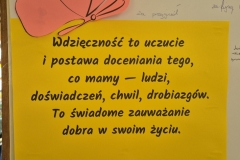 Wdzięczność to uczucie
i postawa doceniania tego,
co mamy — ludzi,
doświadczeń, chwil, drobiazgów.
To świadome zauważanie
dobra w swoim życiu.